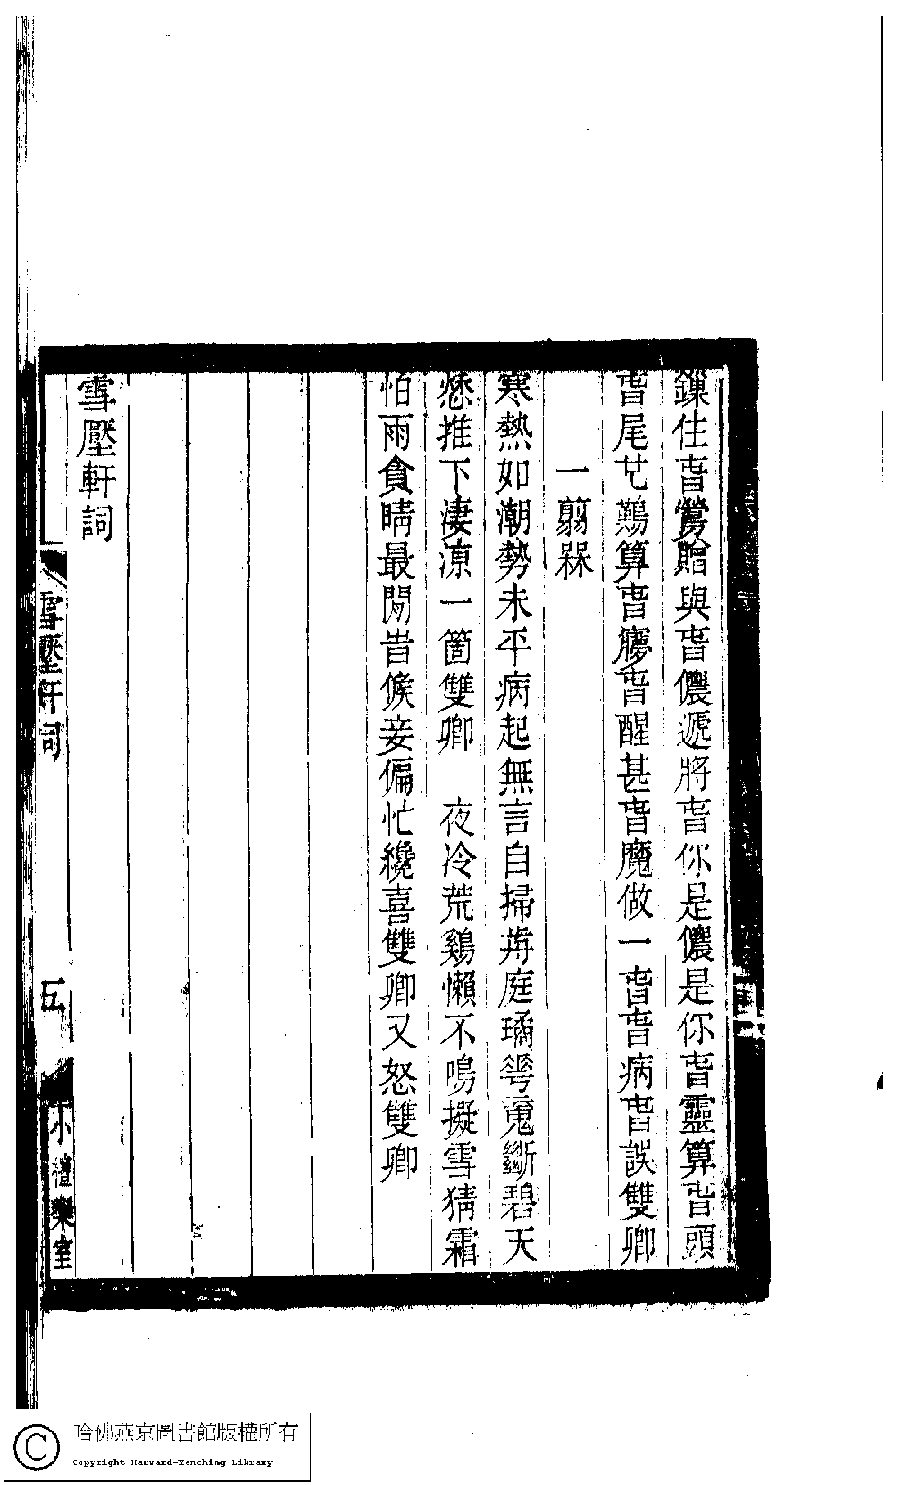 鍊住旾鶯贈與旾儂遞將旾你是儂是你旾靈算旾頭
旾尾也難算旾夢旾醒甚旾魔做一旾旾病旾誤雙卿
一翦槑
寒熱如潮勢未平病起無言自掃歬庭璚蕐䰟斷碧天
愁推下凄凉一箇雙卿　夜冷荒鷄懶不鳴擬雪猜霜
怕雨貪晴最閒旹候妾偏忙纔喜雙卿又怒雙卿
雪壓軒詞
雪壓軒詞
五
小檀欒室
哈佛燕京圖書館版權所有
Copyright Harvard-Yenching Library